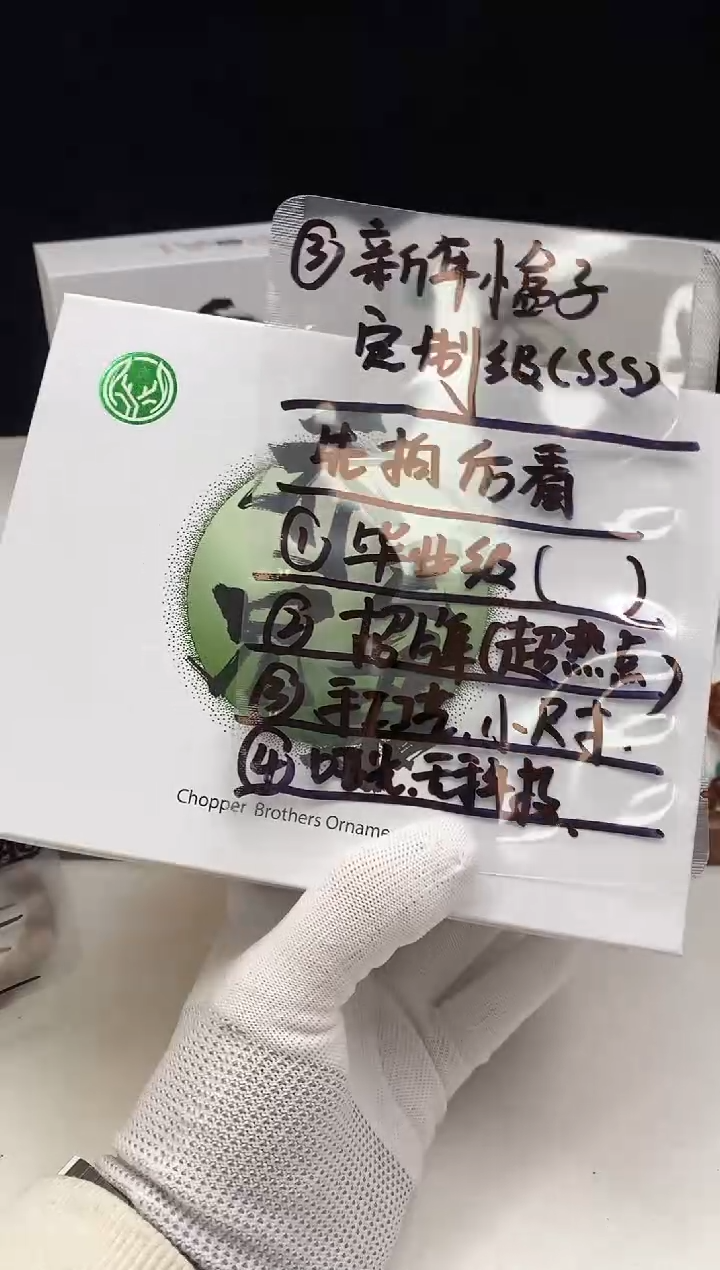 ③ 新年盒子
定制级(SSS)
先拍后看
① 毕业级( )
② 招牌(超热点)
③ 手工法.小尺寸.
④ 哑光.无科技.
Chopper Brothers Orname